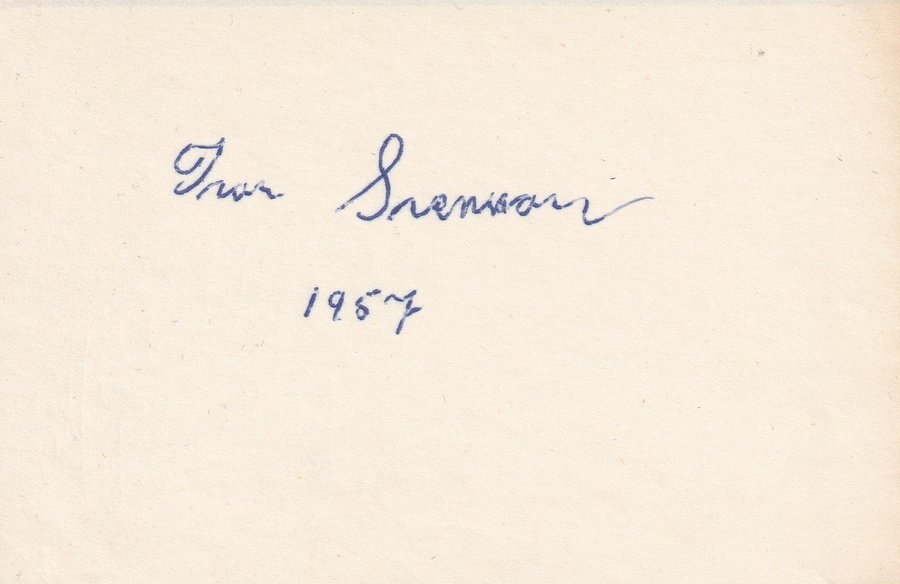 Ivar Svensson
1957